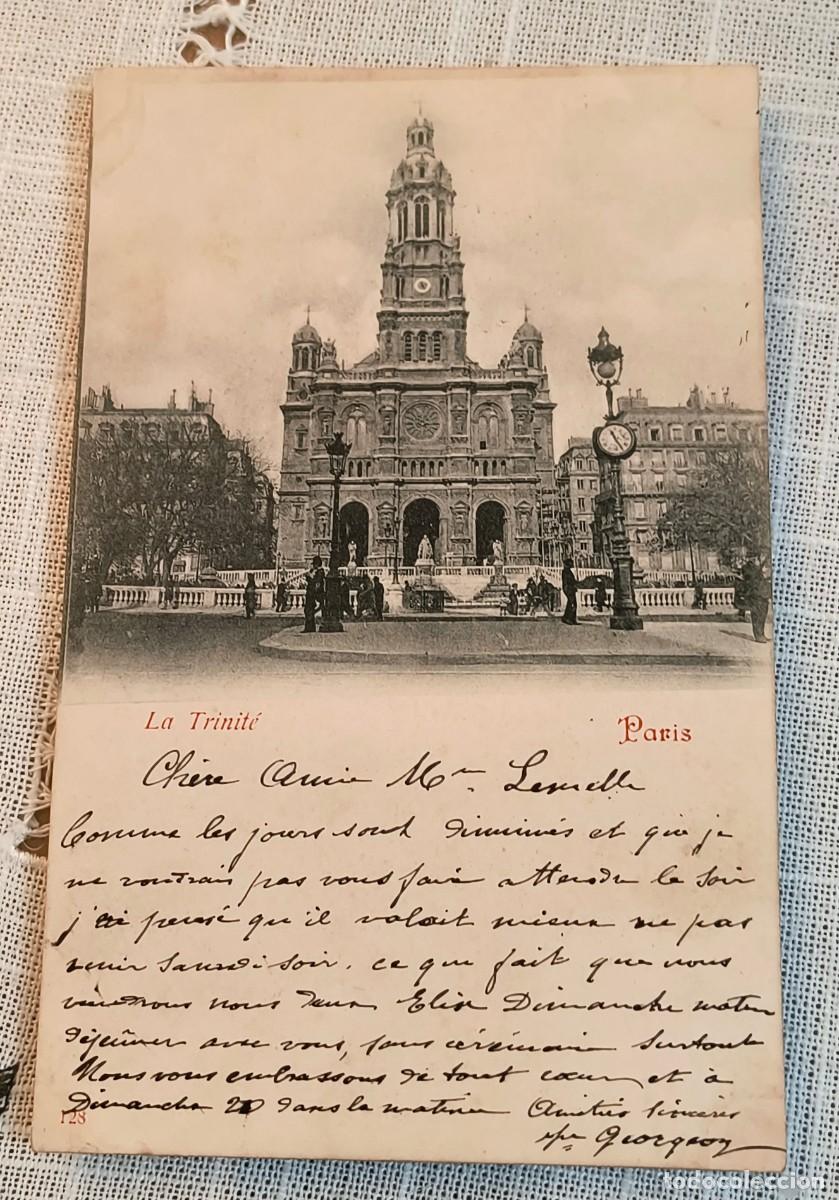 La Trinité
Paris
Chère Amie Mme Lemelle
Comme les jours sont diminués et que je
ne voudrais pas vous faire attendre le soir
j'ai pensé qu'il valait mieux ne pas
venir samedi soir. ce que fait que nous
viendrons nous deux Elise Dimanche matin
déjeûner avec vous, sans cérémonie surtout
Nous vous embrassons de tout cœur et à
Dimanche 20 dans la matinée Amitiés sincères
128
todocoleccion